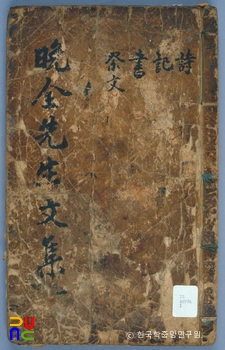 詩
記
書
祭文
晩全先生文集
ⓒ 한국학중앙연구원